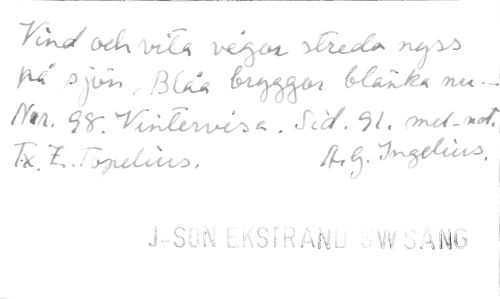 Vind och vita vågor streda nyss
på sjön. Blåa bryggor blänka nu—
Nr. 98. Vintervisa. Sid. 91. mel-not.
Tx. Z. Topelius. A.G. Ingelius.
J-SON EKSTRAND SW SÅNG